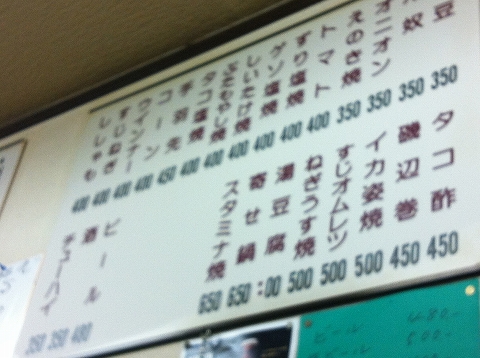 豆 350
奴 350
オニオン 350
えのき焼 350
トマト 400
すり塩焼 400
ゲソ塩焼 400
しいたけ焼 400
タコ塩焼 400
手羽先 400
コーン 450
ウインナー 400
すじねぎ 400
ししゃも 400
タコ酢 450
磯辺巻 450
イカ姿焼 500
すじオムレツ 500
ねぎうす焼 500
湯豆腐 :00
寄せ鍋 650
スタミナ焼 650
ビール 400
酒 350
チューハイ 350
ビール 480-
ビール 500-